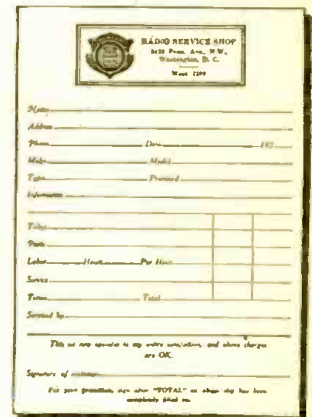 RADIO SERVICE SHOP
Penn. Ave., N.W.,
Washington, D. C.
West
Name
Address
Phone Date 193
Make Model
Type Promised
Information
Tubes
Parts
Labor Hours Per Hour
Service
Taxes Total
Serviced by
This set now operates to my entire satisfaction, and above charges
are OK.
Signature of customer
For your protection, sign after "TOTAL" on above slip has been
completely filled in.